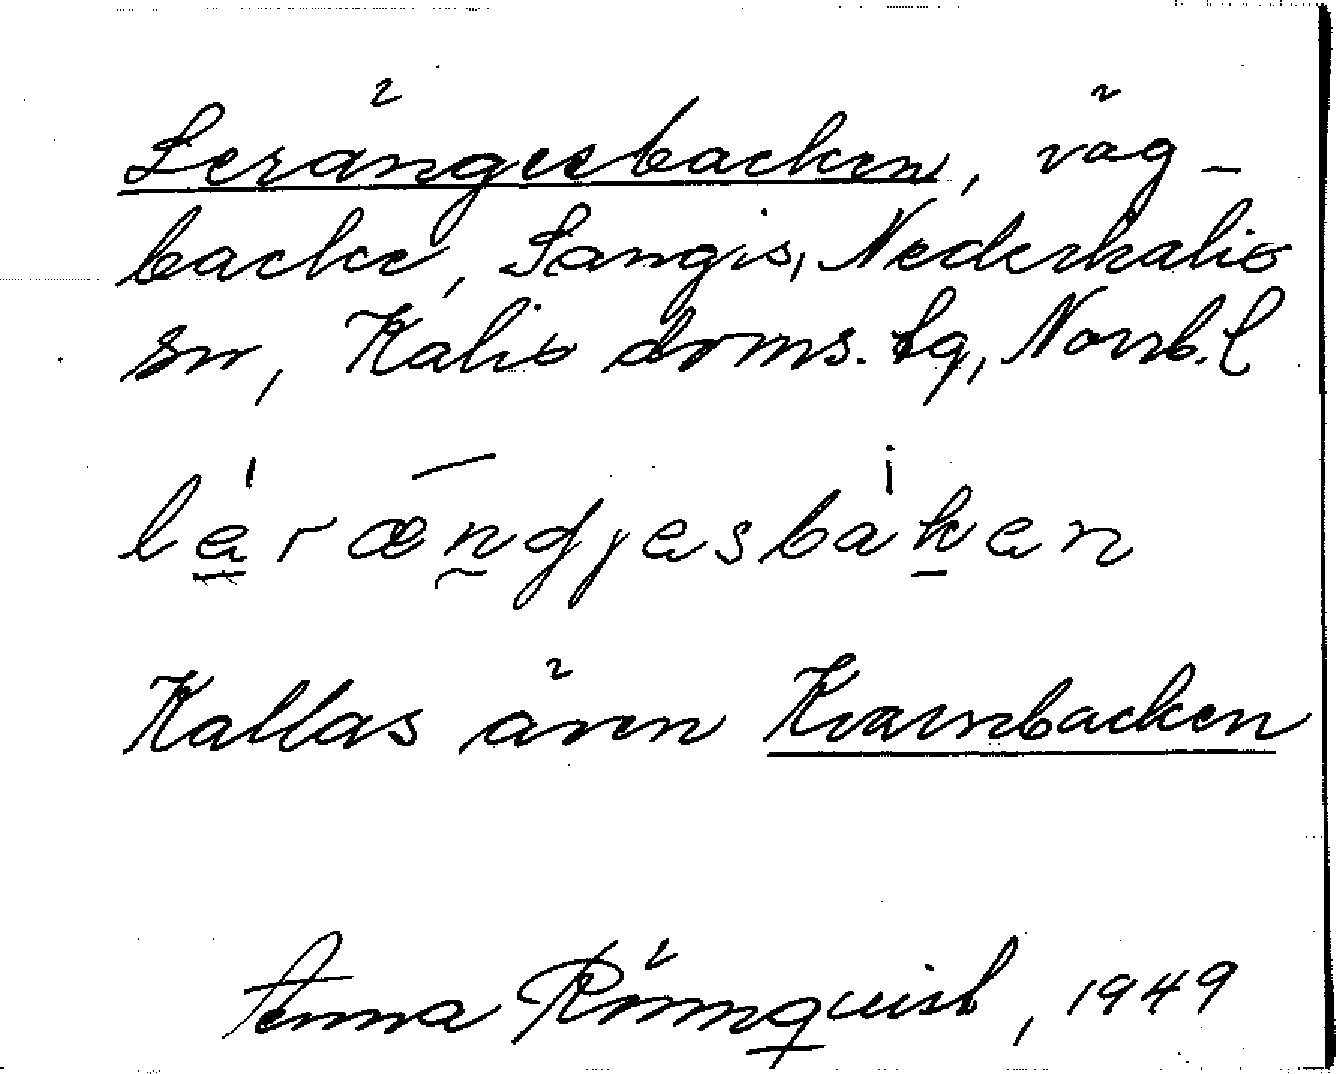 Lerängesbacken, väg-
backe, Sangis, Nederkalix
sn, Kalix doms. lg, Norrb. l
lerængjesbaken
Kallas även Kvarnbacken
Anna Rönnquist, 1949